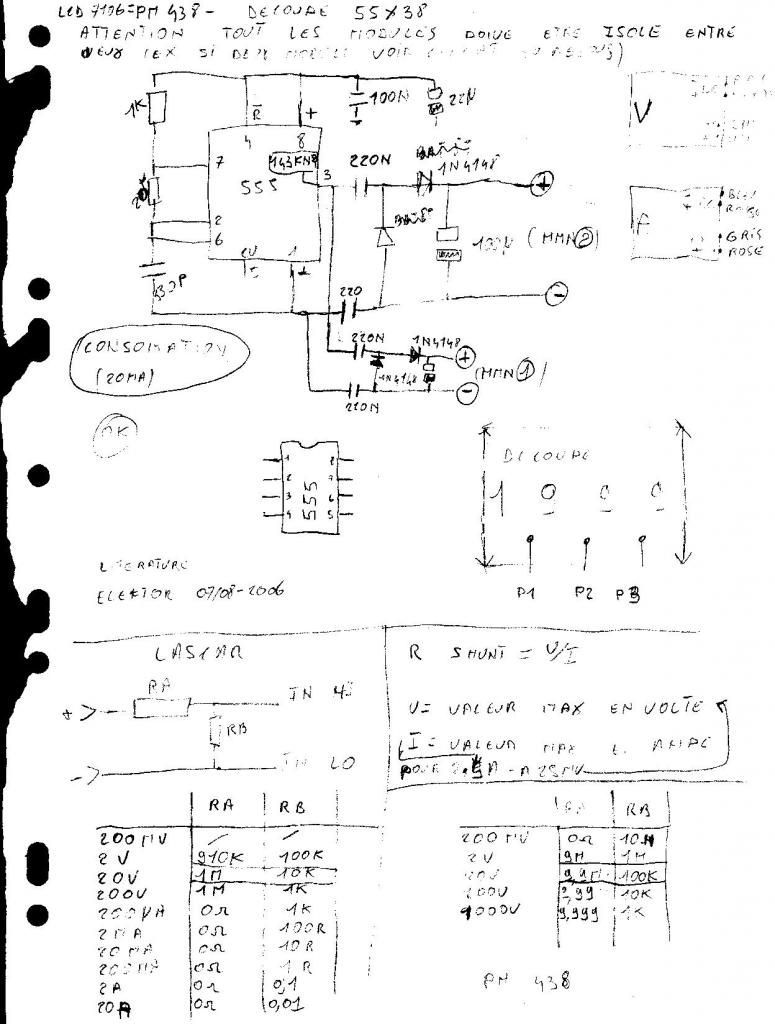 LCD 7106=PM 438 - DECOUPE 55X38
ATTENTION TOUT LES MODULES DOIVE ETRE ISOLE ENTRE
VOIR
1K
R
+
100N
22N
V
4
8
7
143KHZ
3
555
220N
1N4148
+
2
6
1
(MMN 2)
A
ROSE
GRIS
ROSE
220
-
CONSOMATION
(20MA)
220N
1N4148
+
1N4148
(MMN 1)
-
220N
OK
1
2
3
4
555
8
7
6
5
DECOUPE
1 0 0 0
P1 P2 P3
LITERATURE
ELEKTOR 07/08-2006
LASCAR
RA
+
IN HI
RB
-
IN LO
R SHUNT = V/I
V= VALEUR MAX EN VOLTE
I= VALEUR MAX
POUR
RA RB
200MV / /
2V 910K 100K
20V 1M 10K
200V 1M 1K
200µA 0Ω 1K
2MA 0Ω 100R
20MA 0Ω 10R
200MA 0Ω 1R
2A 0Ω 0,1
20A 0Ω 0,01
RA RB
200MV 0Ω 10M
2V 9M 1M
20V 9,9M 100K
200V 9,99 10K
1000V 9,999 1K
PM 438